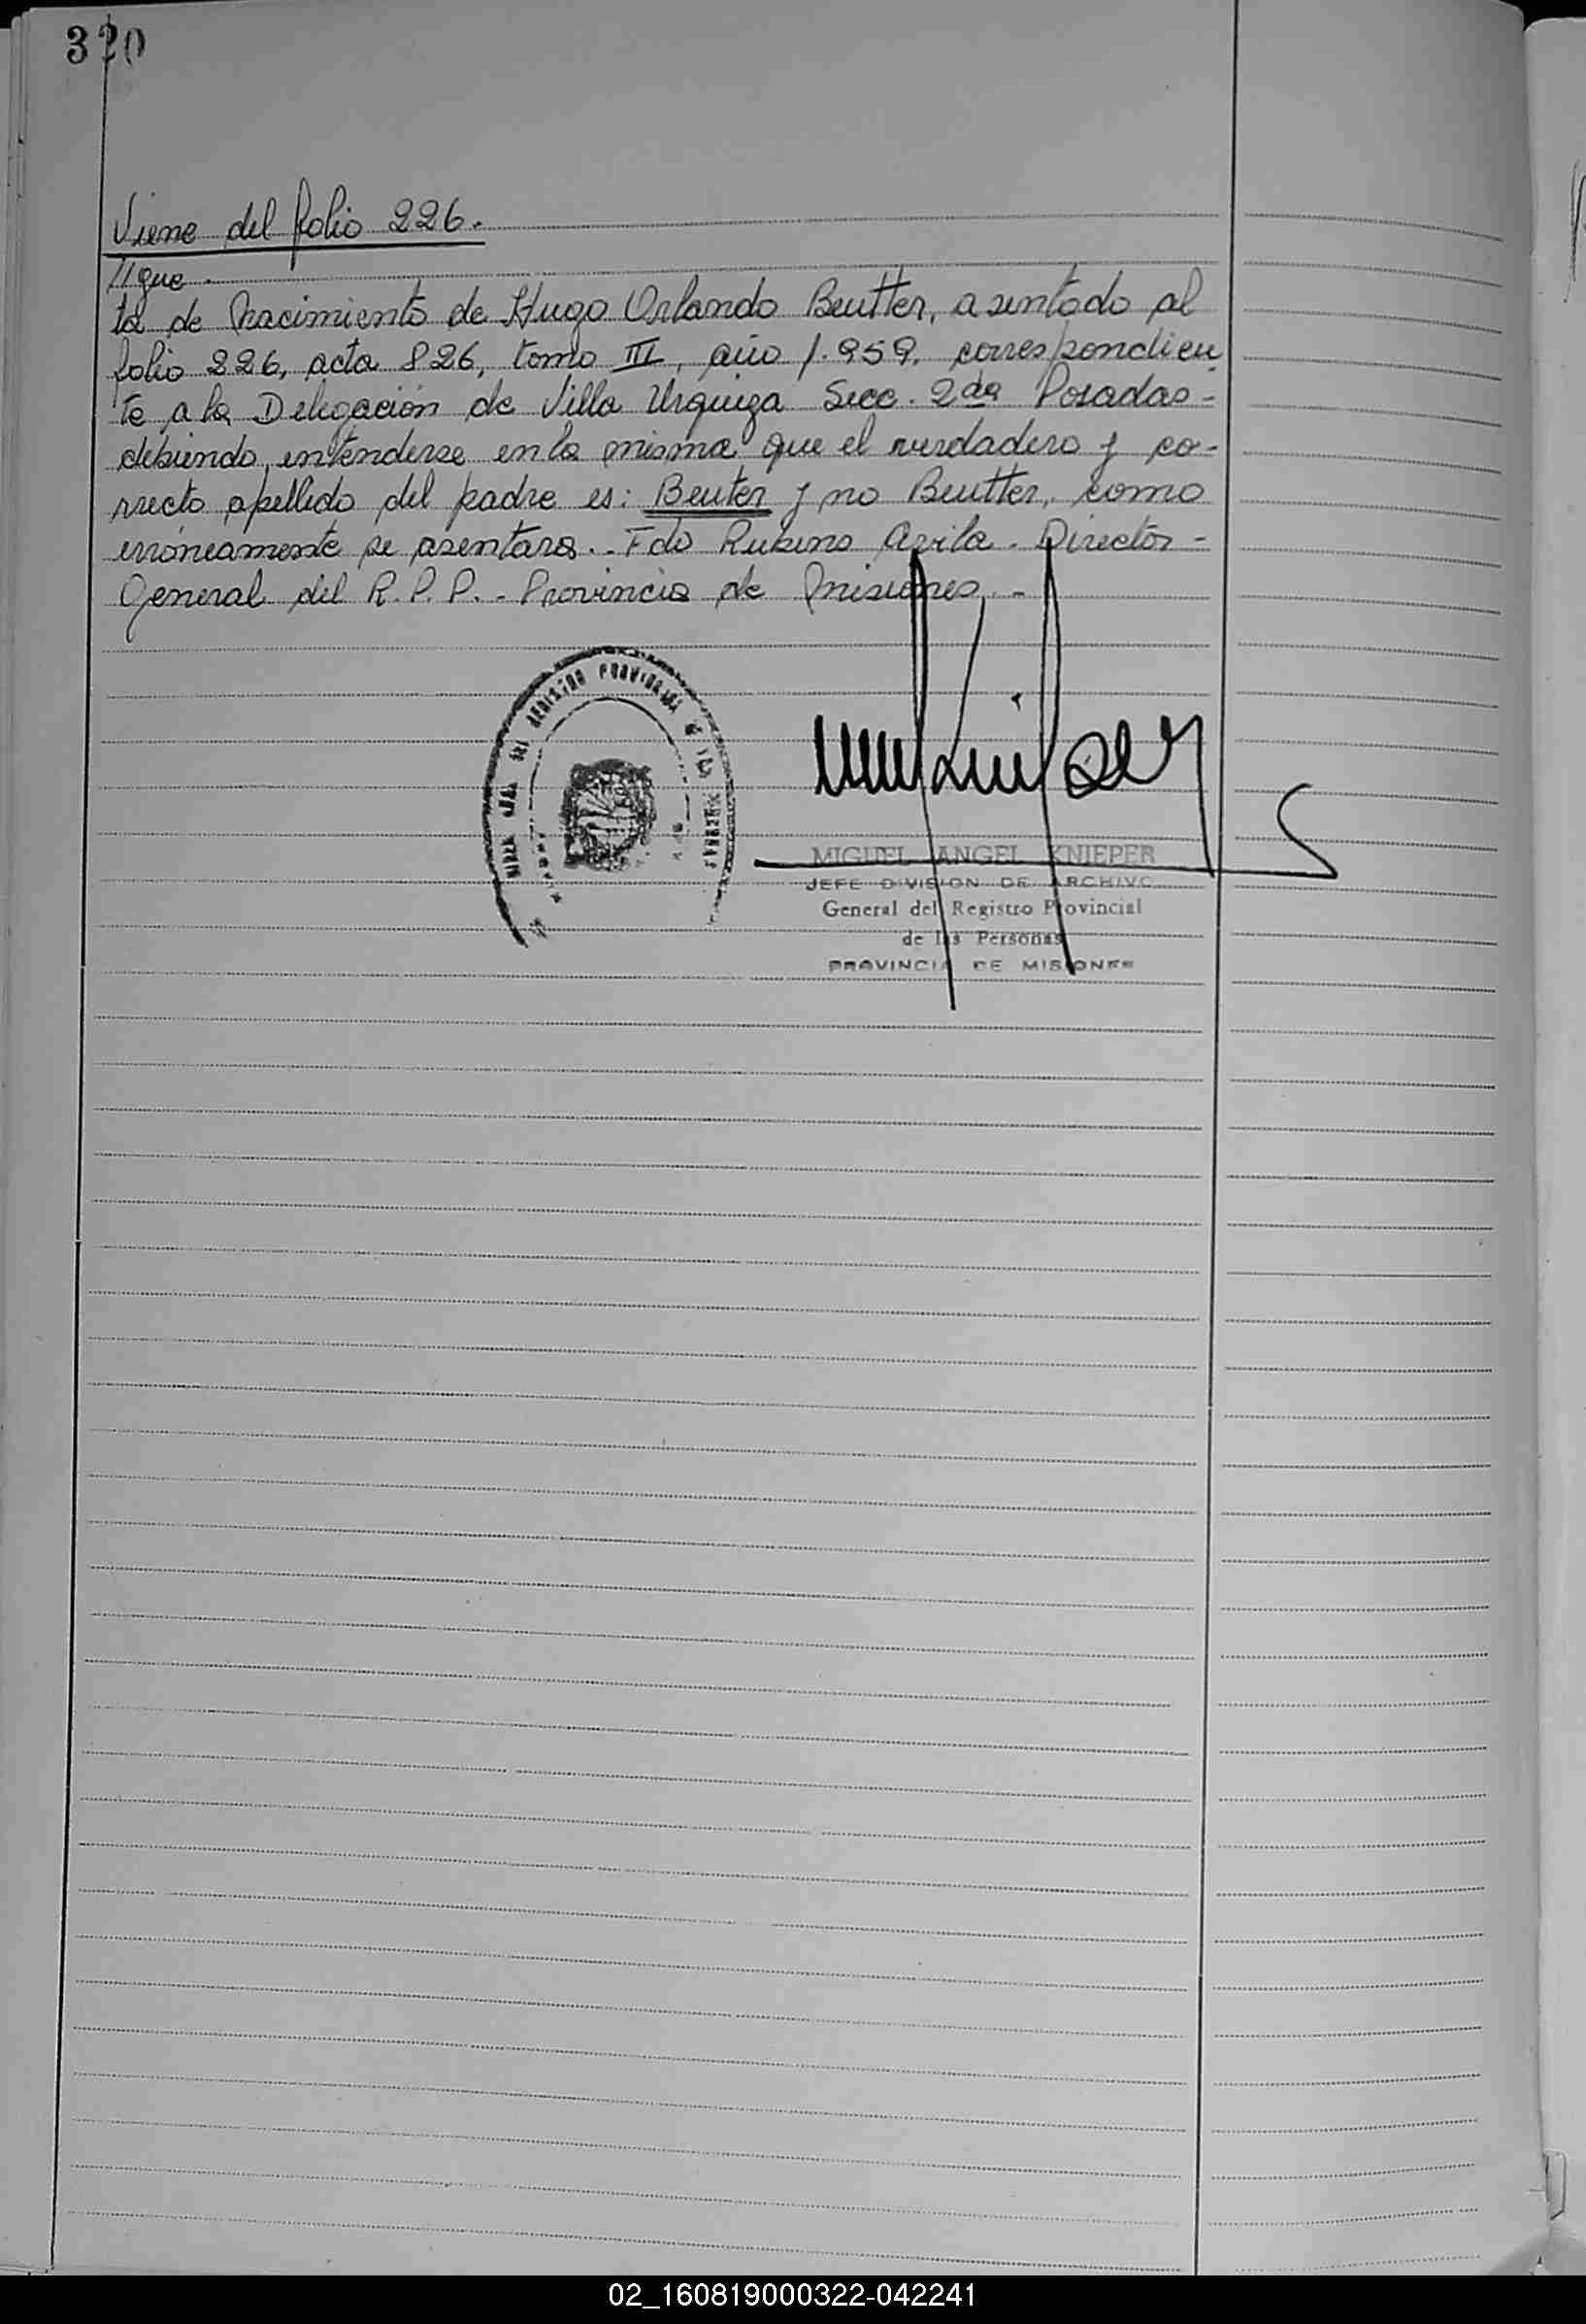 320
Viene del folio 226.
//que.
ta de Nacimiento de Hugo Orlando Beutter, asentado al
folio 226, acta 826, tomo III, año 1.959. correspondien
te a la Delegación de Villa Urquiza Secc. 2da Posadas-
debiendo, entenderse en la misma que el verdadero y co-
rrecto apellido del padre es: Beuter y no Beutter, como
erróneamente se asentara.- Fdo Rubens Avila. Director-
General del R.P.P.- Provincia de Misiones.-
REGISTRO PROVINCIAL DE LAS PERSONAS
MIGUEL ANGEL KNIEPER
JEFE DIVISION DE ARCHIVO
General del Registro Provincial
de las Personas
PROVINCIA DE MISIONES
02_160819000322-042241